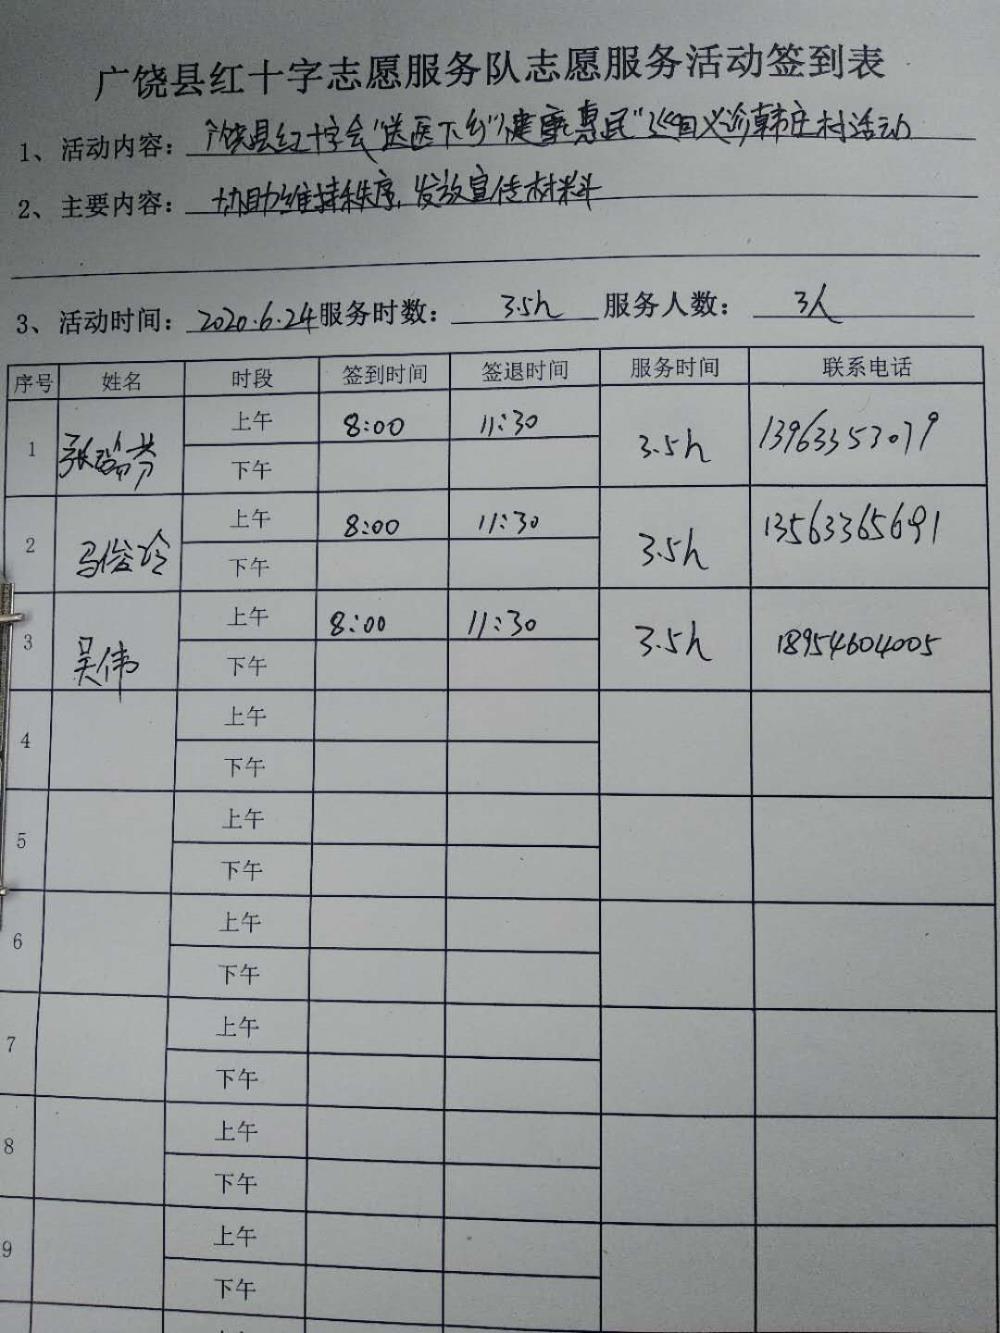 广饶县红十字志愿服务队志愿服务活动签到表
1、活动内容：广饶县红十字会"送医下乡""健康惠民"巡回义诊韩庄村活动
2、主要内容：协助维持秩序,发放宣传材料
3、活动时间：2020.6.24服务时数：3.5h 服务人数：3人
序号 姓名 时段 签到时间 签退时间 服务时间 联系电话
1 张瑞芳 上午 8:00 11:30 3.5h 13963353079
下午
2 马俊玲 上午 8:00 11:30 3.5h 13563365691
下午
3 吴伟 上午 8:00 11:30 3.5h 18954604005
下午
4 上午
下午
5 上午
下午
6 上午
下午
7 上午
下午
8 上午
下午
9 上午
下午